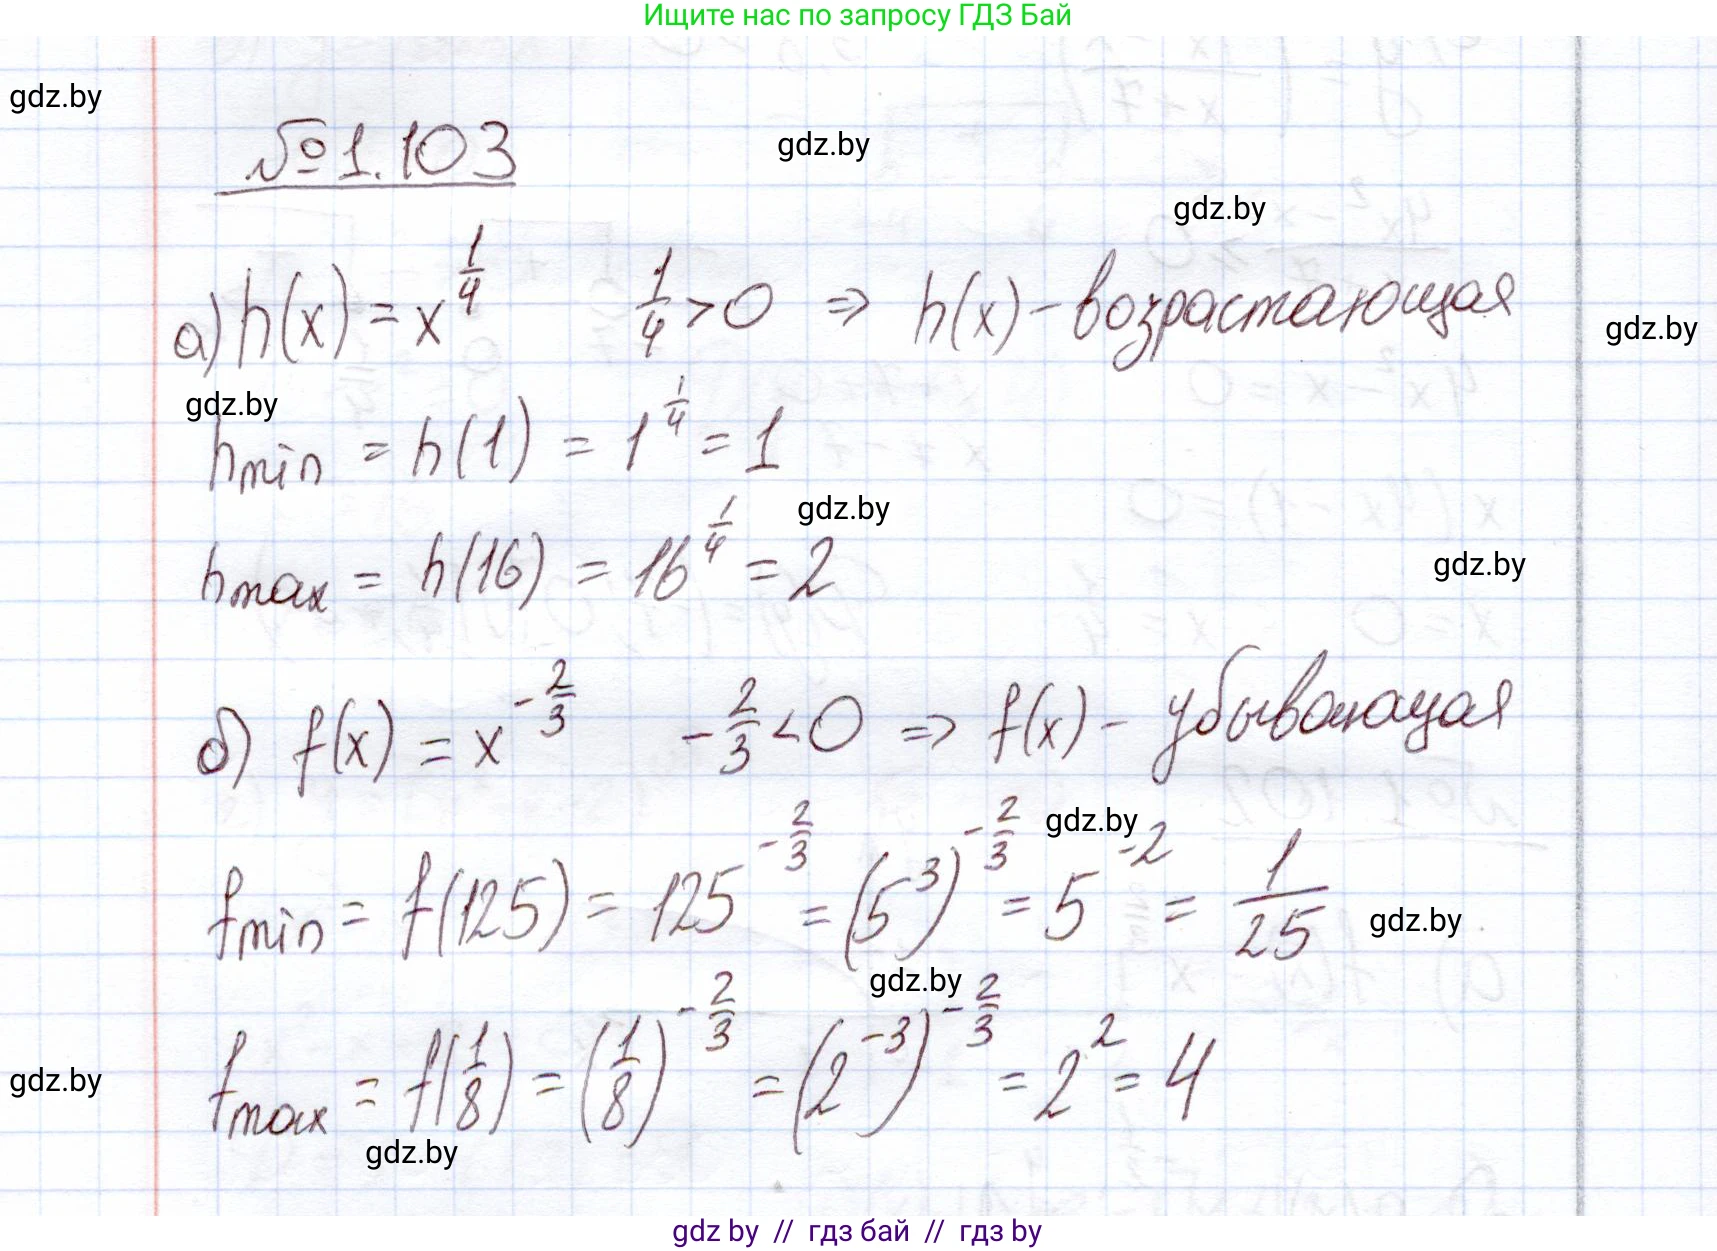 Ищите нас по запросу ГДЗ Бай
gdz.by
№1.103
gdz.by
gdz.by
а) h(x) = x^{1/4}   1/4 > 0 ⇒ h(x) - возрастающая
gdz.by
gdz.by
h_{min} = h(1) = 1^{1/4} = 1
gdz.by
h_{max} = h(16) = 16^{1/4} = 2
gdz.by
б) f(x) = x^{-2/3}   -2/3 < 0 ⇒ f(x) - убывающая
gdz.by
f_{min} = f(125) = 125^{-2/3} = (5^3)^{-2/3} = 5^{-2} = 1/25
gdz.by
gdz.by
f_{max} = f(1/8) = (1/8)^{-2/3} = (2^{-3})^{-2/3} = 2^2 = 4
gdz.by
gdz.by
gdz by // гдз бай // гдз by